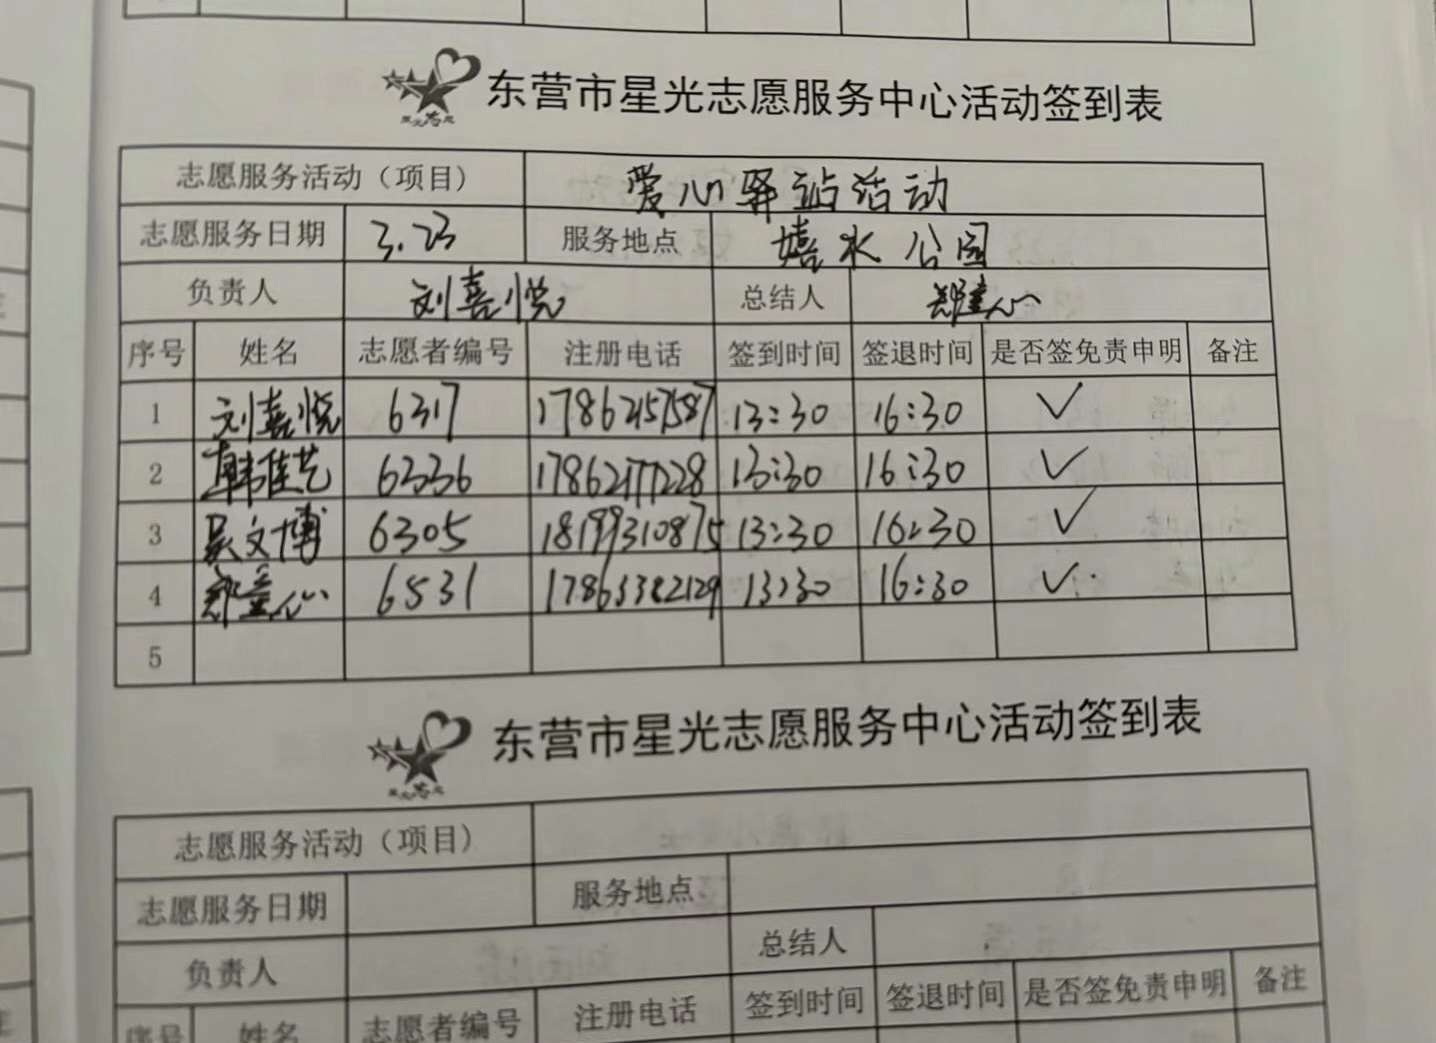 东营市星光志愿服务中心活动签到表
志愿服务活动（项目） 爱心驿站活动
志愿服务日期 3.23 服务地点 嬉水公园
负责人 刘喜悦 总结人
序号 姓名 志愿者编号 注册电话 签到时间 签退时间 是否签免责申明 备注
1 刘喜悦 6317 17862157587 13:30 16:30 ✓
2 韩佳艺 6336 17862177228 13:30 16:30 ✓
3 吴文博 6305 18199310875 13:30 16:30 ✓
4 6531 17863382129 13:30 16:30 ✓
5
东营市星光志愿服务中心活动签到表
志愿服务活动（项目）
志愿服务日期 服务地点
负责人 总结人
序号 姓名 志愿者编号 注册电话 签到时间 签退时间 是否签免责申明 备注